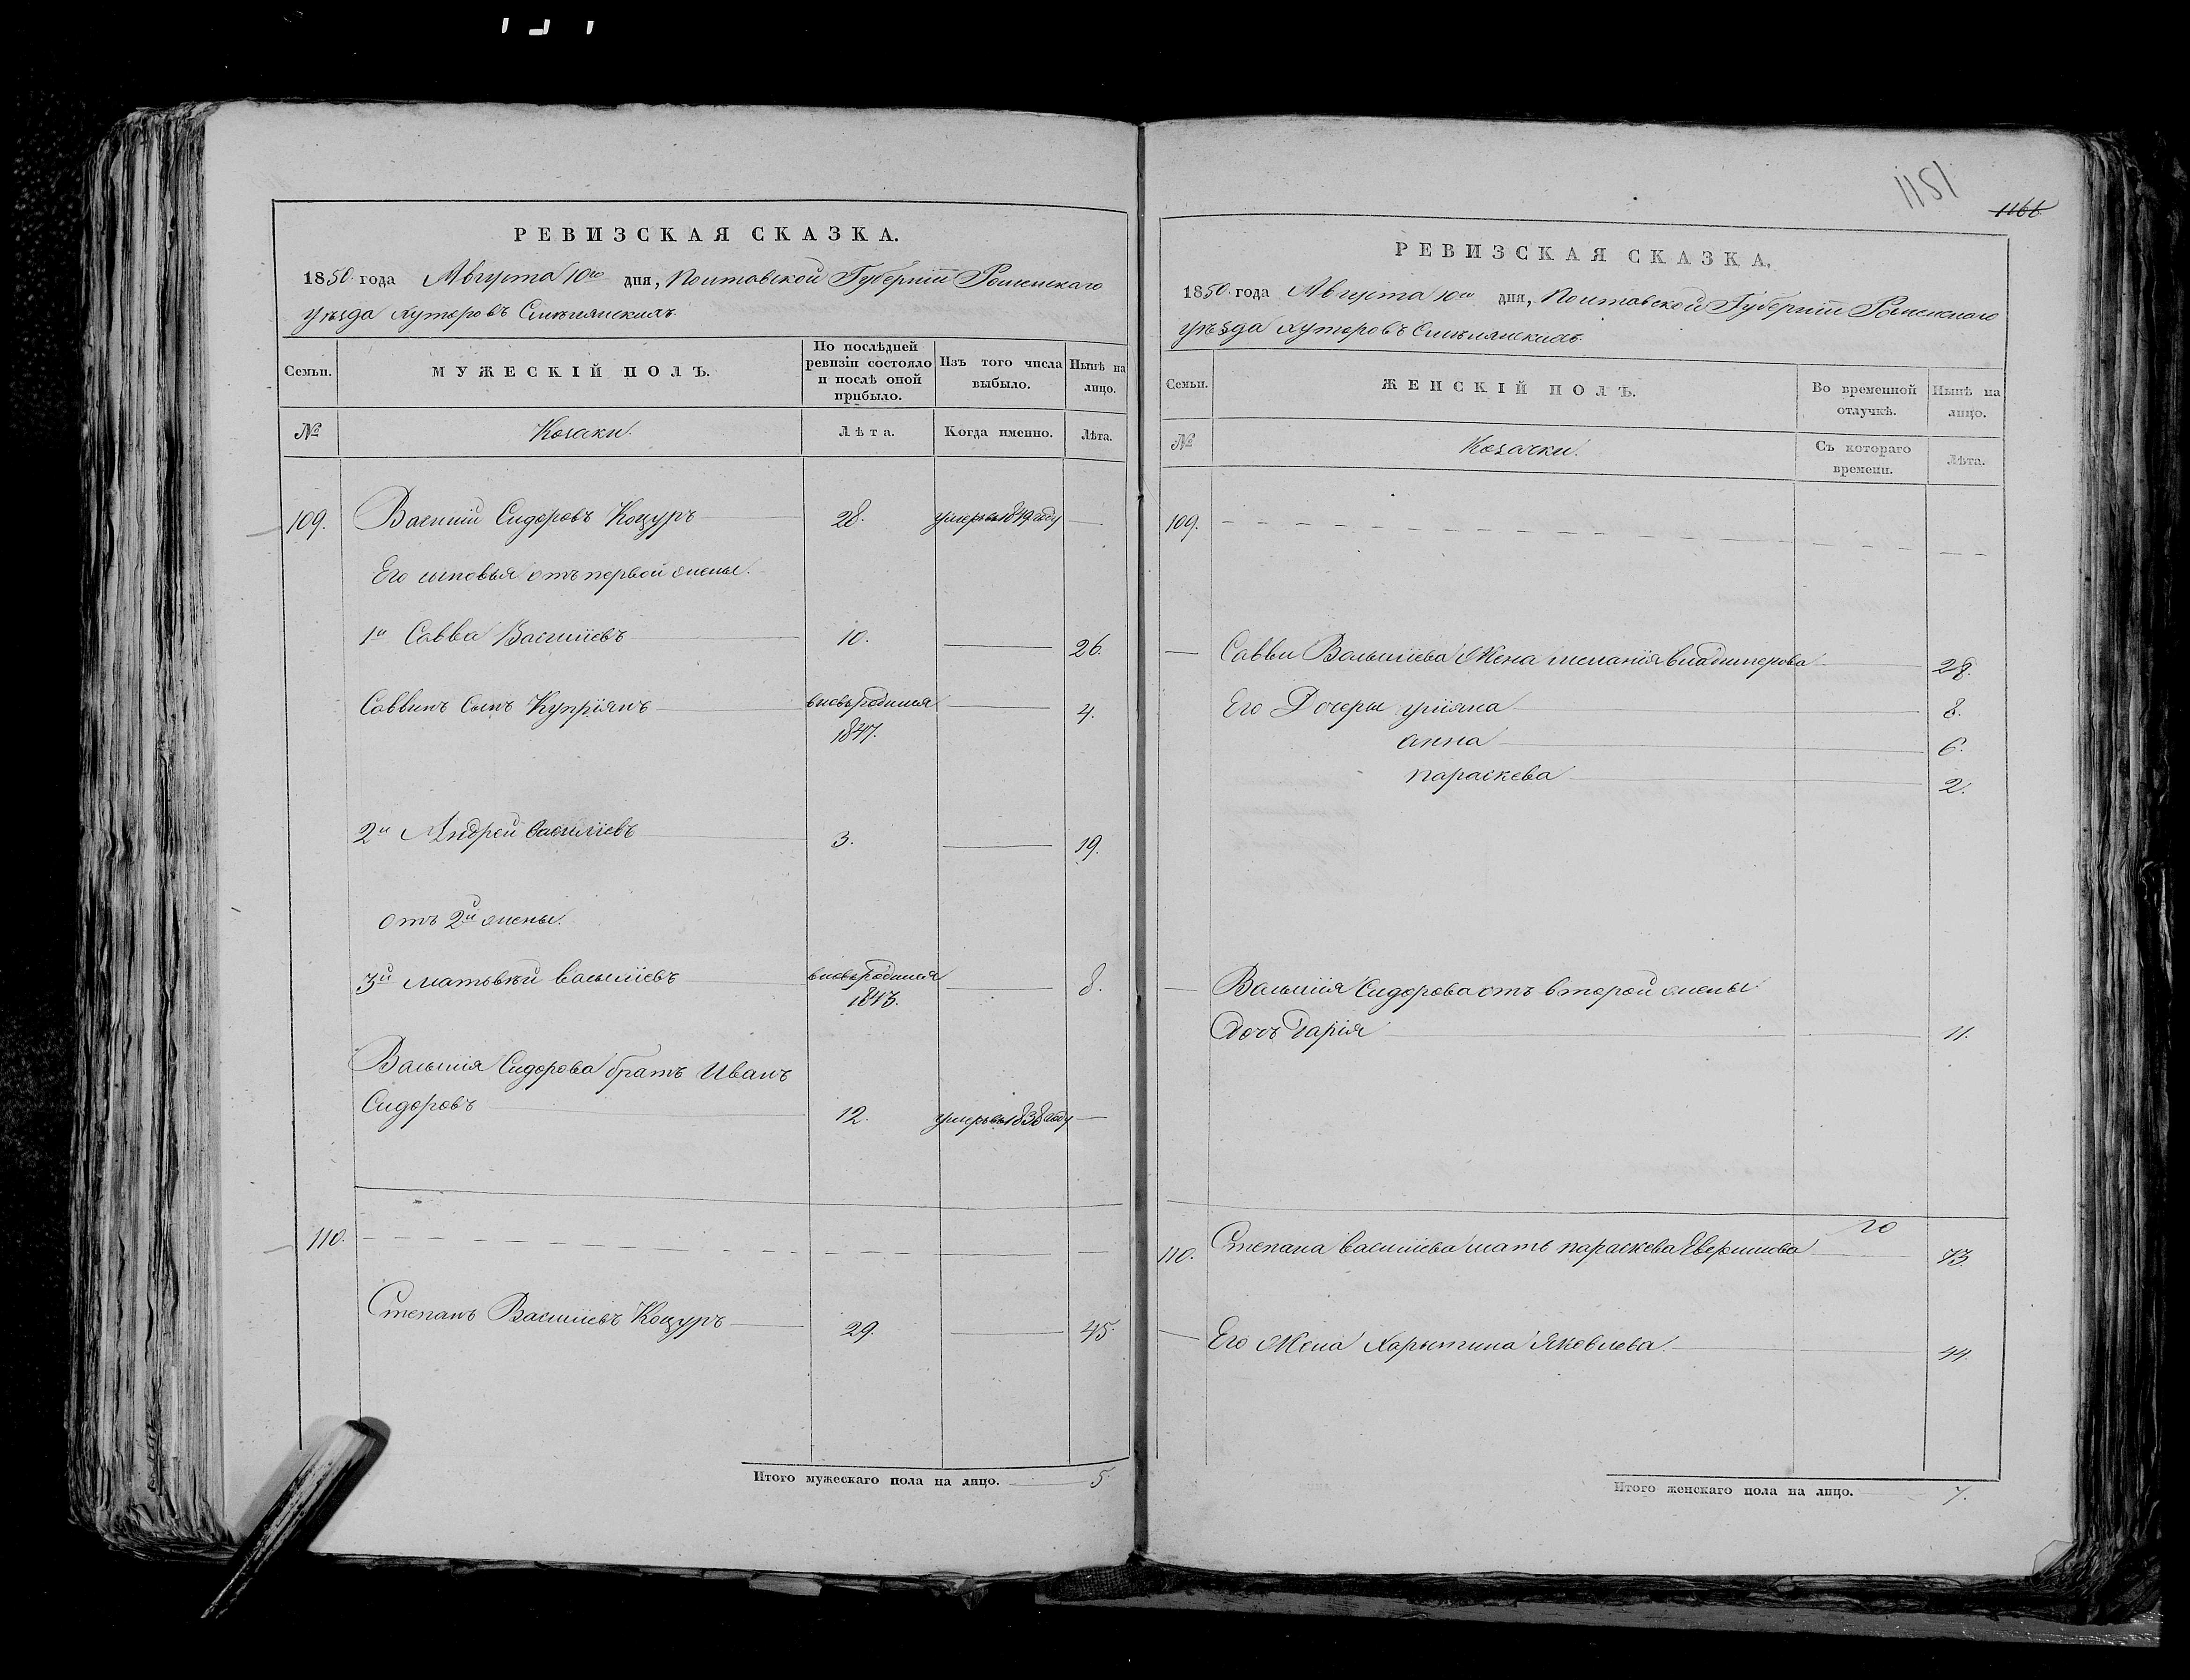 РЕВИЗСКАЯ СКАЗКА.
1850 года Августа 10го дня, Полтавской Губерніи Роменскаго
уѣзда хуторовъ Смѣлянскихъ
Семьи.
МУЖЕСКІЙ ПОЛЪ.
По послѣдней ревизіи состояло и послѣ оной прибыло.
Изъ того числа выбыло.
Нынѣ на лицо.
№
Козаки.
Лѣта.
Когда именно.
Лѣта.
109. Василий Сидоровъ Коцуръ 28. умеръ въ 1849 году
Его сыновья отъ первой жены.
1й Савва Василіевъ 10. 26.
Саввинъ сынъ Купріянъ вновь родился 4.
1847.
2й Андрей Василіевъ 3. 19.
отъ 2й жены.
3й Матьвѣй Василіевъ вновь родился 8.
1843.
Василія Сидорова братъ Иванъ
Сидоровъ 12. умеръ въ 1838 году
110.
Степанъ Василіевъ Коцуръ 29. 45.
Итого мужескаго пола на лицо. 5.
1151
1166
РЕВИЗСКАЯ СКАЗКА.
1850 года Августа 10го дня, Полтавской Губерніи Роменскаго
уѣзда хуторовъ Смѣлянскихъ
Семьи.
ЖЕНСКІЙ ПОЛЪ.
Во временной отлучкѣ.
Нынѣ на лицо.
№
Козачки.
Съ котораго времени.
Лѣта.
109.
Саввы Василіева Жена Меланія Владимерова 28.
Его Дочеры Уліяна 8.
Анна 6.
Параскева 2.
Василія Сидорова отъ второй жены
Дочь Дарія 11.
110. Степана Василіева мать Параскева 73.
Его Жена Харытина Яковлева. 44.
Итого женскаго пола на лицо. 7.